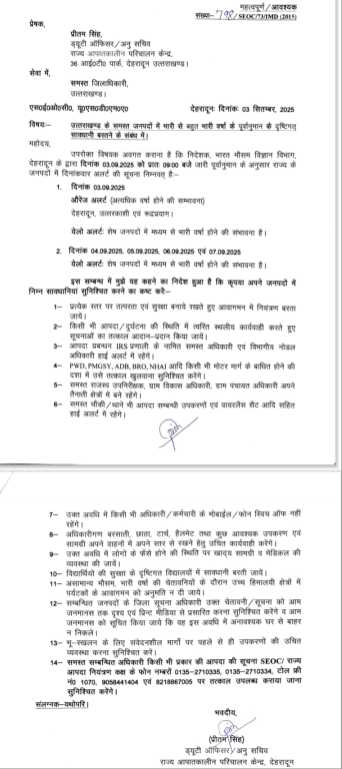 महत्वपूर्ण/आवश्यक
संख्याः- 798/SEOC/73/IMD (2015)
प्रेषक,
प्रीतम सिंह,
ड्यूटी ऑफिसर/अनु सचिव
राज्य आपातकालीन परिचालन केन्द्र,
36 आई०टी० पार्क, देहरादून उत्तराखण्ड।
सेवा में,
समस्त जिलाधिकारी,
उत्तराखण्ड।
एस०ई०ओ०सी०, यू०एस०डी०एम०ए० देहरादूनः दिनांक 03 सितम्बर, 2025
विषयः- उत्तराखण्ड के समस्त जनपदों में भारी से बहुत भारी वर्षा के पूर्वानुमान के दृष्टिगत
सावधानी बरतने के संबंध में।
महोदय,
उपरोक्त विषयक अवगत कराना है कि निदेशक, भारत मौसम विज्ञान विभाग,
देहरादून के द्वारा दिनांक 03.09.2025 को प्रातः 09:00 बजे जारी पूर्वानुमान के अनुसार राज्य के
जनपदों में दिनांकवार अलर्ट की सूचना निम्नवत् है:-
1. दिनांक 03.09.2025
औरेंज अलर्ट (अत्यधिक वर्षा होने की सम्भावना)
देहरादून, उत्तरकाशी एवं रूद्रप्रयाग।
येलो अलर्टः शेष जनपदों में मध्यम से भारी वर्षा होने की संभावना है।
2. दिनांक 04.09.2025, 05.09.2025, 06.09.2025 एवं 07.09.2025
येलो अलर्टः शेष जनपदों में मध्यम से भारी वर्षा होने की संभावना है।
इस सम्बन्ध में मुझे यह कहने का निदेश हुआ है कि कृपया अपने जनपदों में
निम्न सावधानियां सुनिश्चित करने का कष्ट करेंः-
1- प्रत्येक स्तर पर तत्परता एवं सुरक्षा बनाये रखते हुए आवागमन में नियंत्रण बरता
जाये।
2- किसी भी आपदा/दुर्घटना की स्थिति में त्वरित स्थलीय कार्यवाही करते हुए
सूचनाओं का तत्काल आदान-प्रदान किया जाये।
3- आपदा प्रबन्धन IRS प्रणाली के नामित समस्त अधिकारी एवं विभागीय नोडल
अधिकारी हाई अलर्ट में रहेंगे।
4- PWD, PMGSY, ADB, BRO, NHAI आदि किसी भी मोटर मार्ग के बाधित होने की
दशा में उसे तत्काल खुलवाना सुनिश्चित करेंगे।
5- समस्त राजस्व उपनिरीक्षक, ग्राम विकास अधिकारी, ग्राम पंचायत अधिकारी अपने
तैनाती क्षेत्रों में बने रहेंगे।
6- समस्त चौकी/थाने भी आपदा सम्बन्धी उपकरणों एवं वायरलैस सैट आदि सहित
हाई अलर्ट में रहेंगे।
7- उक्त अवधि में किसी भी अधिकारी/कर्मचारी के मोबाईल/फोन स्विच ऑफ नहीं
रहेंगे।
8- अधिकारीगण बरसाती, छाता, टार्च, हैलमेट तथा कुछ आवश्यक उपकरण एवं
सामग्री अपने वाहनों में अपने स्तर से रखने हेतु उचित कार्यवाही करेंगे।
9- उक्त अवधि में लोगों के फँसे होने की स्थिति पर खाद्य सामग्री व मेडिकल की
व्यवस्था की जाये।
10- विद्यार्थियों की सुरक्षा के दृष्टिगत विद्यालयों में सावधानी बरती जाये।
11- असामान्य मौसम, भारी वर्षा की चेतावनियों के दौरान उच्च हिमालयी क्षेत्रों में
पर्यटकों के आवागमन को अनुमति न दी जाये।
12- सम्बन्धित जनपदों के जिला सूचना अधिकारी उक्त चेतावनी/सूचना को आम
जनमानस तक दृश्य एवं प्रिन्ट मीडिया से प्रसारित करना सुनिश्चित करेंगे व आम
जनमानस को सूचित किया जाये कि वह इस अवधि में अनावश्यक घर से बाहर
न निकले।
13- भू-स्खलन के लिए संवेदनशील मार्गों पर पहले से ही उपकरणों की उचित
व्यवस्था करना सुनिश्चित करें।
14- समस्त सम्बन्धित अधिकारी किसी भी प्रकार की आपदा की सूचना SEOC/ राज्य
आपदा नियंत्रण कक्ष के फोन नम्बरों 0135-2710335, 0135-2710334, टोल फ्री
नं० 1070, 9058441404 एवं 8218867005 पर तत्काल उपलब्ध कराया जाना
सुनिश्चित करेंगे।
संलग्नक-यथोपरि।
भवदीय,
(प्रीतम सिंह)
ड्यूटी ऑफिसर/अनु सचिव
राज्य आपातकालीन परिचालन केन्द्र, देहरादून